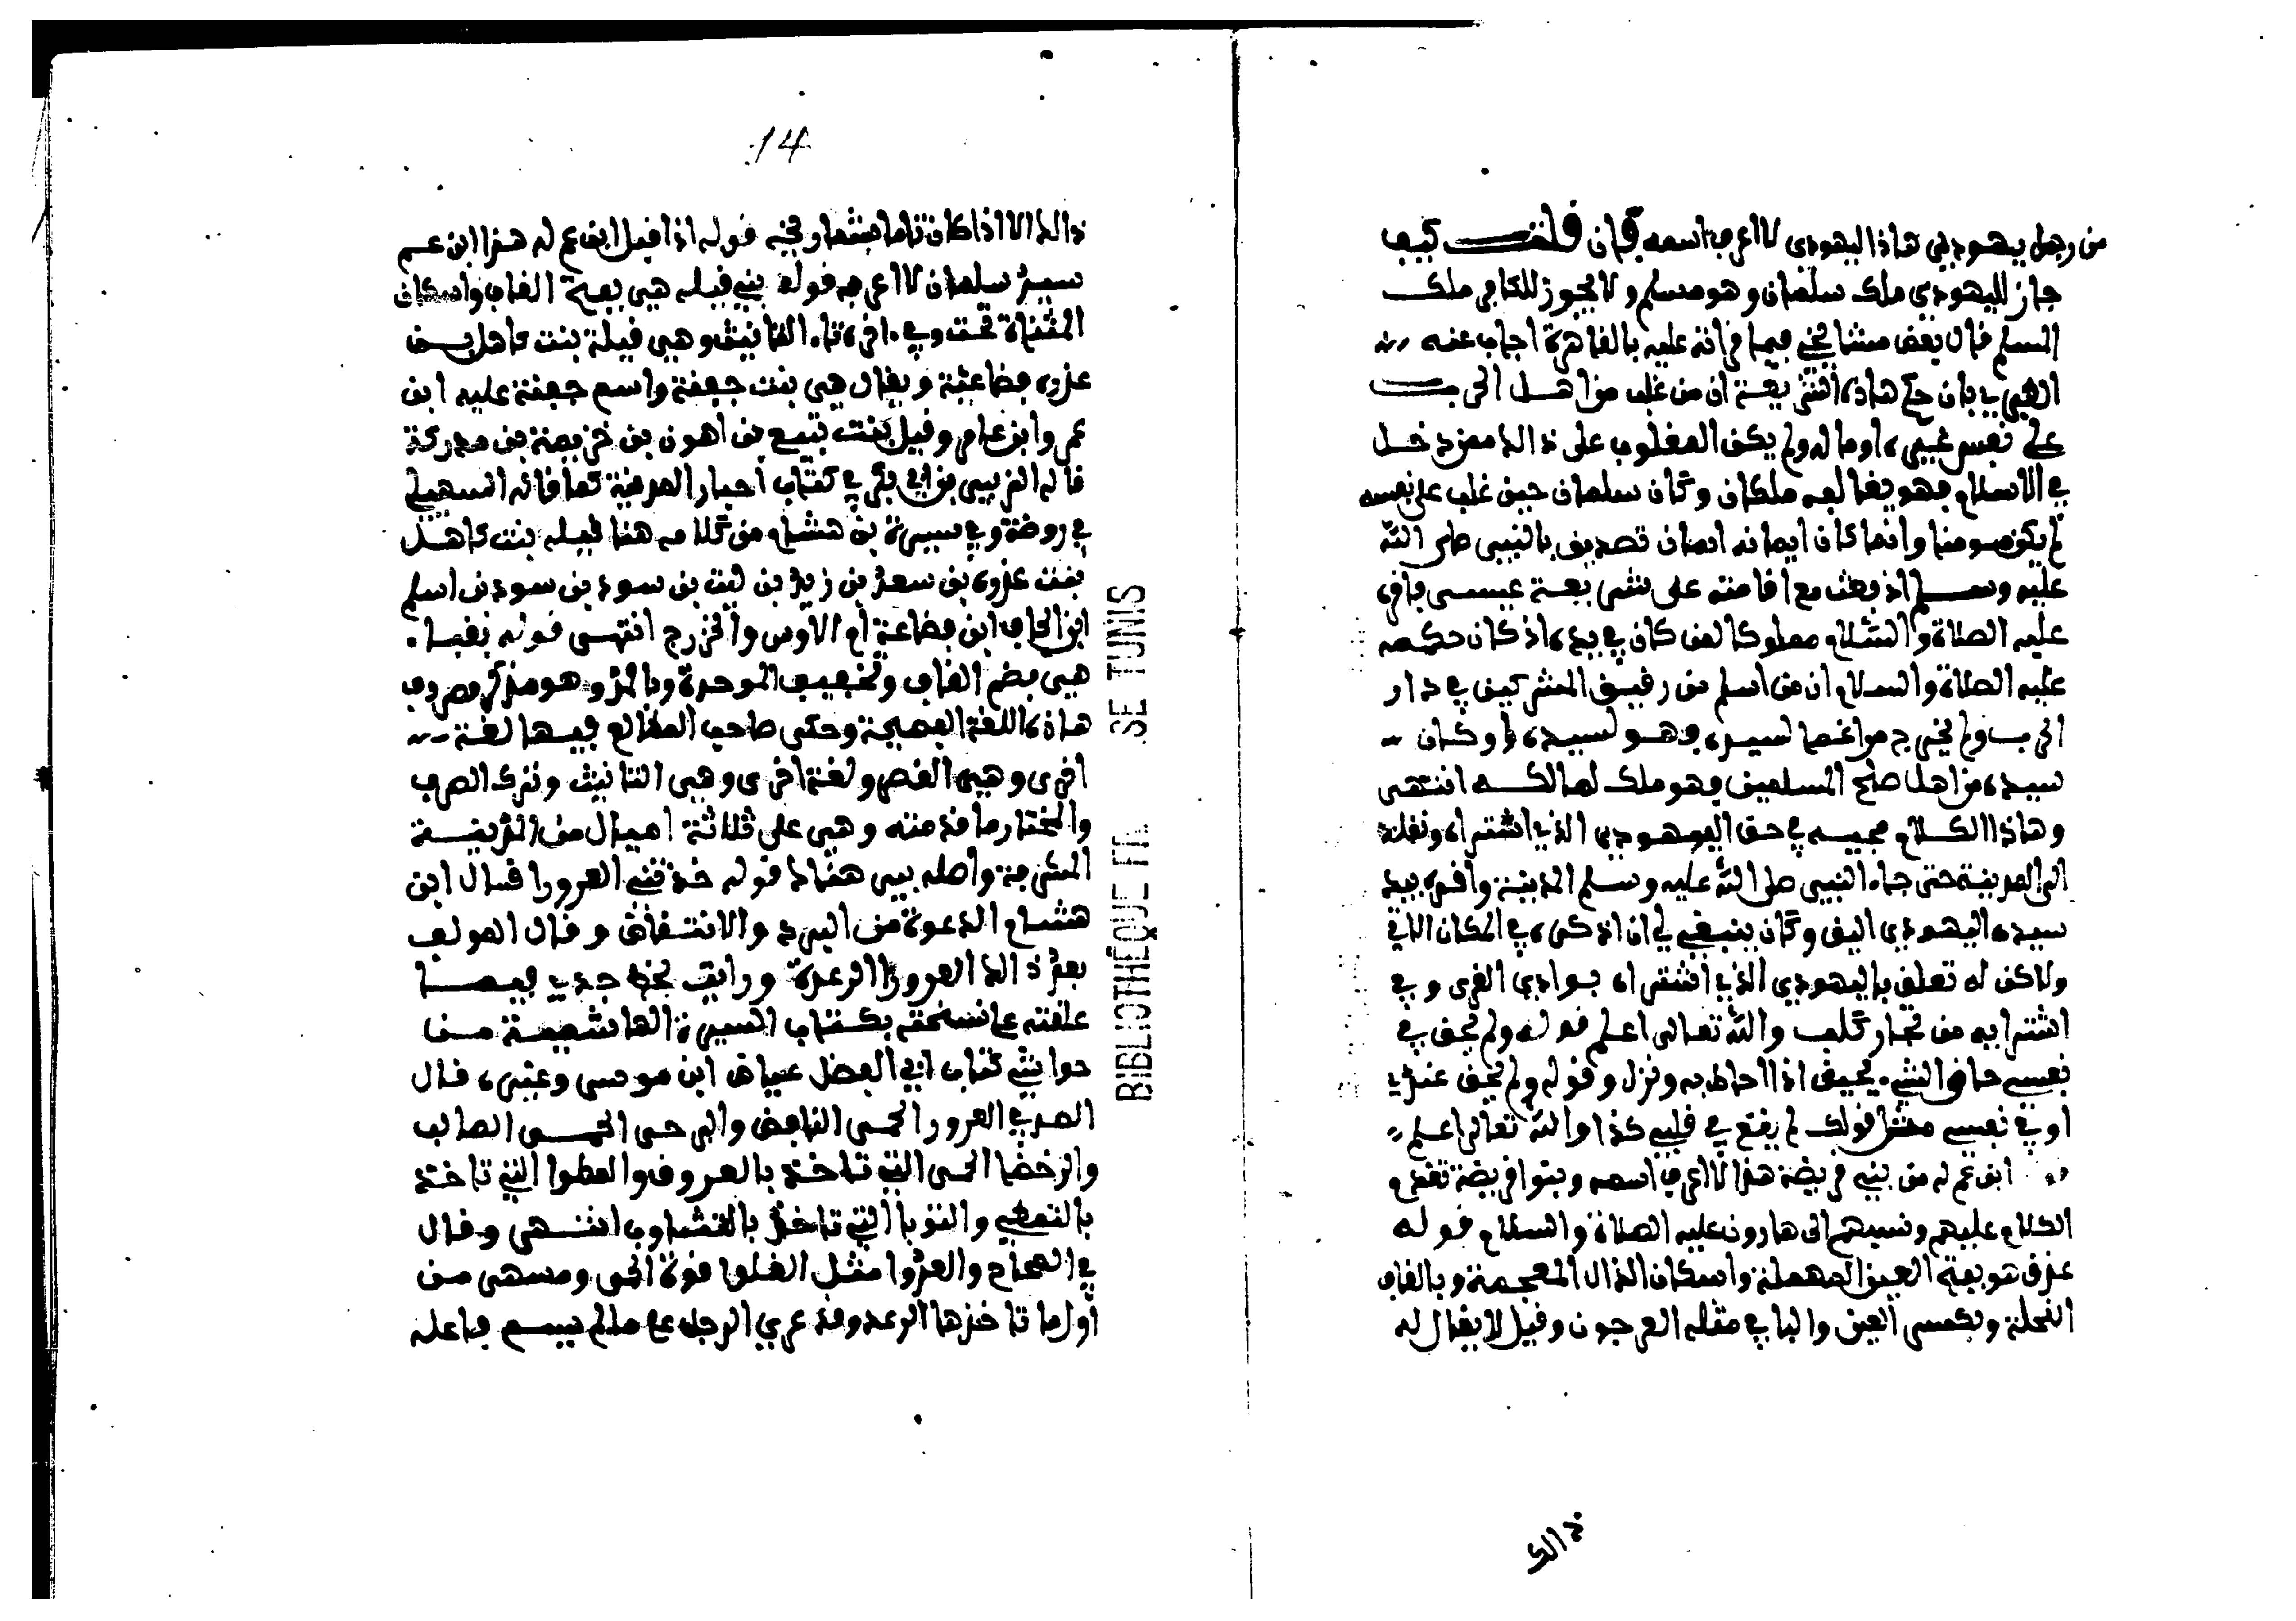 من رجل يهودي هاذا اليهودي لا اعرف اسمه فان قلت كيف
جاز لليهودي ملك سلمان وهو مسلم ولا يجوز للكافر ملك
المسلم قال بعض مشايخي فيما قراته عليه بالقاهرة اجاب عنه
بان حكم هاذه الشريعة ان من غلب من اهل الحرب
على نفس غيره او ماله ولم يكن المغلوب على ذالك ممن دخل
في الاسلام فهو لغالبه ملكان وكان سلمان حين غلب على نفسه
لم يكن مومنا وانما كان ايمانه ايمان تصديق بالنبي صلى الله
عليه وسلم اذ بعث مع اقامته على شريعة عيسى فاقره
عليه الصلاة والسلام مملوكا لمن كان في يده اذ كان حكمه
عليه الصلاة والسلام ان من اسلم من رقيق المشركين في دار
الحرب ولم يخرج مراغما لسيده فهو لسيده او كان
سيده من اهل صلح المسلمين فهو ملك لمالكه انتهى
وهاذا الكلام مجيبه في حق اليهودي الذي اشتراه ونقله
الى المدينة حتى جاء النبي صلى الله عليه وسلم المدينة واقره بيد
سيده اليهودي اليق وكان ينبغي لي ان اذكره في المكان الاتي
ولاكن له تعلق باليهودي الذي اشتراه بوادي القرى وفي
اشترايه من تجار كلب والله تعالى اعلم قوله ولم يحق في
نفسي حاق الشيء يحيق اذا احاط به ونزل وقوله ولم يحق عندي
او في نفسي مثل قولك لم يقع في قلبي كذا والله تعالى اعلم
ابن عم له من بني قريضة هذا لا اعرف اسمه وبنوا قريضة تقدم
الكلام عليهم ونسبهم الى هارون عليه الصلاة والسلام قوله
عذق هو بفتح العين المهملة واسكان الذال المعجمة وبالقاف
النخلة وبكسر العين والباقي مثله العرجون وقيل لا يقال له
ذالك
14
ذالك الا اذا كان تاما بشماريخه قوله اذا قبل ابن عم له هذا ابن عم
سيد سلمان لا اعرفه قوله بني قيله هي بفتح القاف واسكان
المثناة تحت وفي اخره تاء التانيث وهي قيلة بنت كاهل بن
عذره قضاعية ويقال هي بنت جفنة واسم جفنة عليه ابن
عمر وابن عامر وقيل بنت تبيع بن اهون بن خزيمة بن مدركة
قاله الزبير بن ابي بكر في كتاب اخبار المدينة كما قاله السهيلي
في روضة وفي سيرة بن هشام من كلامه هنا قيله بنت كاهل
بنت عذره بن سعد بن زيد بن ليث بن سود بن سود بن اسلم
ابن الحاف ابن قضاعة ام الاوس والخزرج انتهى قوله بقباء
هي بضم القاف وتخفيف الموحدة وبالمد وهو مذكر مصروف
هاذه اللغة الفصيحة وحكى صاحب المطالع فيها لغة
اخرى وهي القصر ولغة اخرى وهي التانيث وترك الصرف
والمختار ما قدمته وهي على ثلاثة اميال من المدينة
المشرفة واصله بير هناك قوله خذتني العرورا قال ابن
هشام الرعدة من البرد والانتفاض وقال المولف
بعد ذالك العرورا الرعدة ورايت بخط جدي فيما
علقته على نسخته بكتاب السيرة الهاشمية من
حواشي كتاب ابي الفضل عياض ابن موسى وغيره قال
الصدفي العرور الحمى النافض والبرحى الحمى الصالب
والرخضا الحمى التي تاخذ بالعروق والمطوا التي تاخذ
بالتمطي والثوبا التي تاخذ بالتثاوب انتهى وقال
في الصحاح والعدوا مثل الغلوا قوة الحمى ومسهى من
اول ما تاخذها الرعد وقد عري الرجل على ما لم يسم فاعله
BIBLIOTHÈQUE
SE TUNIS